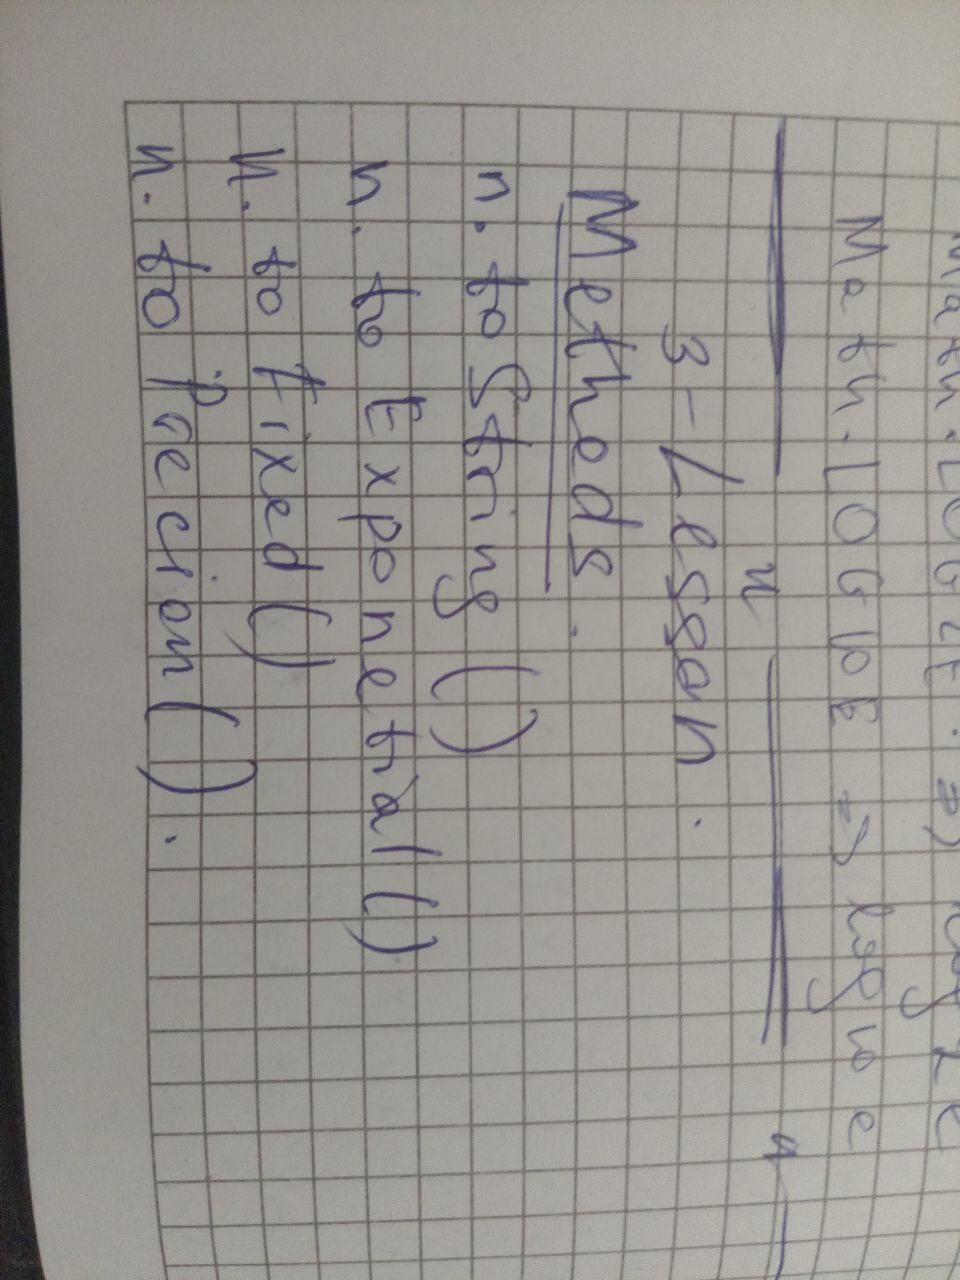 Math.LOG2E. => log2e
Math.LOG10E => log10e
3-Lesson.
Metheds.
n.toString()
n.to Exponetial()
n.to Fixed()
n.to Precion().